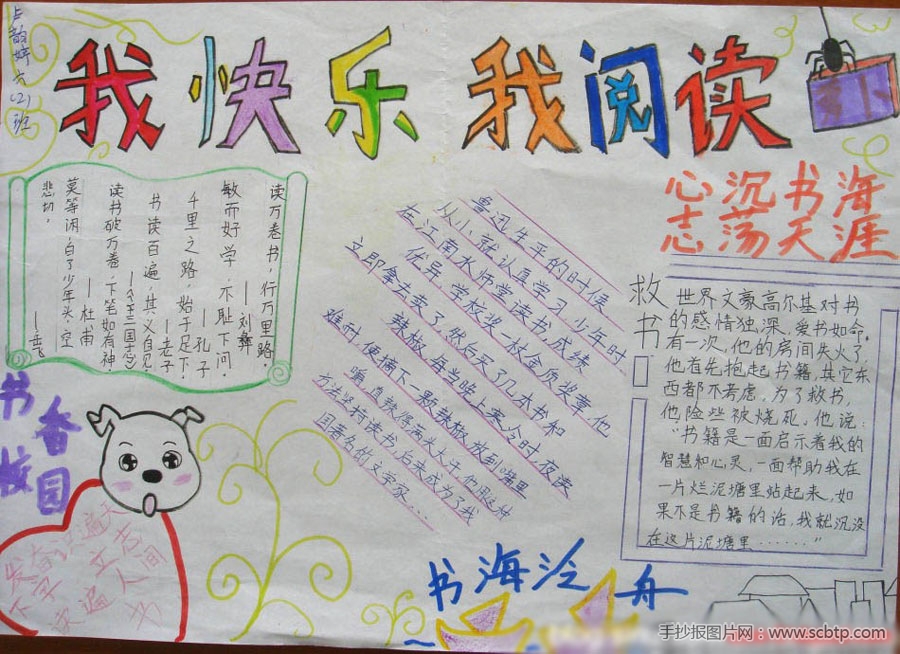 卢韵婷 六(2)班
我快乐 我阅读
读万卷书，行万里路。
——刘彝
敏而好学，不耻下问。
——孔子
千里之路，始于足下。
——老子
书读百遍，其义自见。
——《三国志》
读书破万卷，下笔如有神
——杜甫
莫等闲，白了少年头，空
悲切。
——岳飞
鲁迅生平的时候
从小就认真学习，少年时
在江南水师堂读书，成绩
优异，学校奖一枚金质奖章，他
立即拿去卖了，然后买了几本书和
辣椒，每当晚上寒冷时，夜读
难耐，便摘下一颗辣椒，放到嘴里
嚼，直辣得满头大汗，他用这种
方法坚持读书，后来成为了我
国著名的文学家...
心沉书海
志荡天涯
救书
世界文豪高尔基对书
的感情独深，爱书如命，
有一次，他的房间失火了，
他首先抱起书籍，其它东
西都不考虑，为了救书，
他险些被烧死，他说：
“书籍是一面启示着我的
智慧和心灵，一面帮助我在
一片烂泥塘里站起来，如
果不是书籍的话，我就沉没
在这片泥塘里……”
书香
校园
发奋识遍天
下字 立志
读遍人间
书
书海泠舟
手抄报图片网：www.scbtp.com